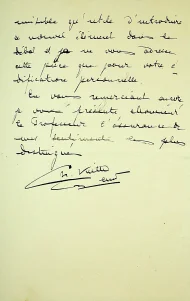 inutile qu'utile d'introduire
ce nouvel élément dans le
débat et je ne vous adresse
cette pièce que pour votre é-
dification personnelle.
En vous remerciant encore
je vous prie
le Professeur l'assurance de
mes sentiments les plus
distingués